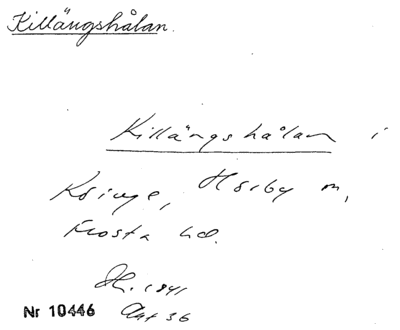 Killängshålan.
Killängshålan i
Hörby m,
Frosta hd.
1841
Nr 10446